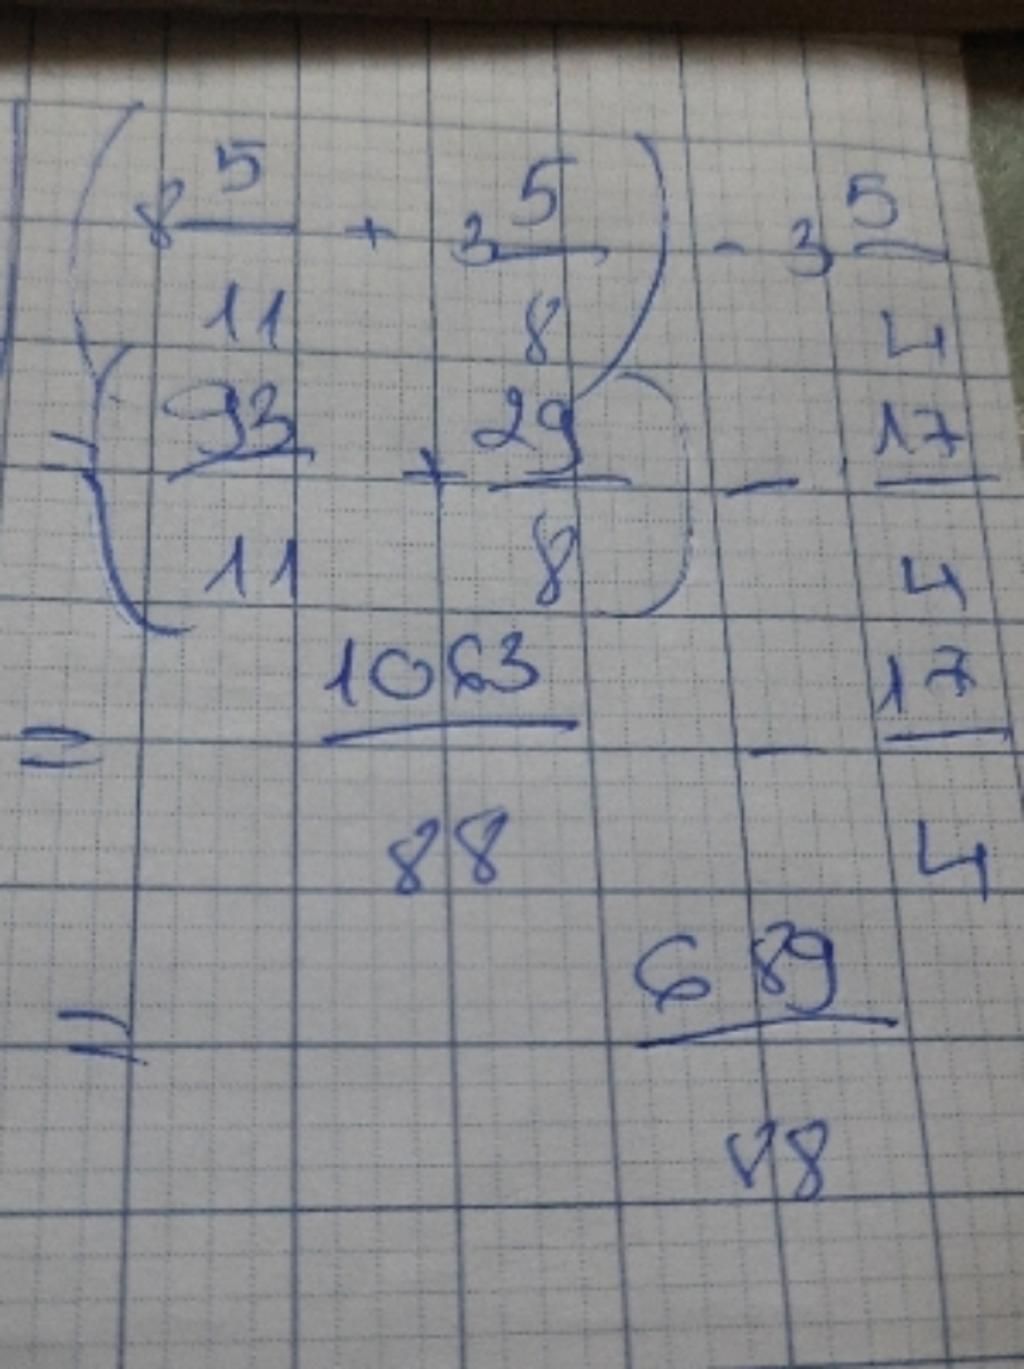 (8 5/11 + 3 5/8) - 3 5/4
= (93/11 + 29/8) - 17/4
= 1063/88 - 17/4
= 689/88